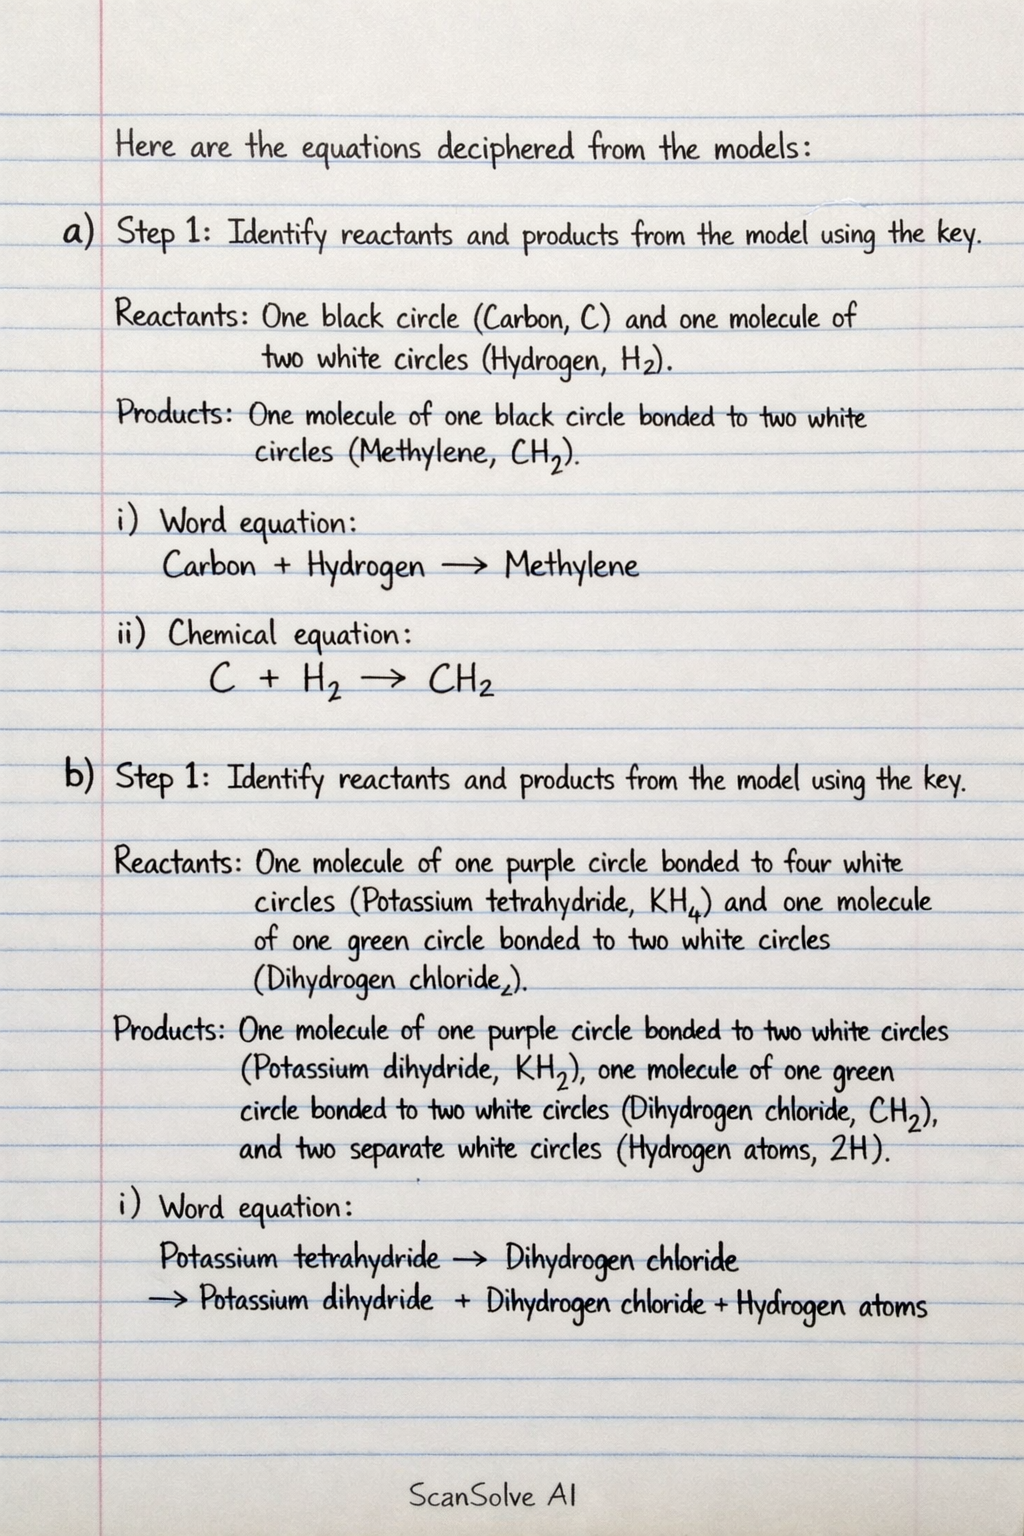 Here are the equations deciphered from the models:
a) Step 1: Identify reactants and products from the model using the key.
Reactants: One black circle (Carbon, C) and one molecule of
two white circles (Hydrogen, H₂).
Products: One molecule of one black circle bonded to two white
circles (Methylene, CH₂).
i) Word equation:
Carbon + Hydrogen → Methylene
ii) Chemical equation:
C + H₂ → CH₂
b) Step 1: Identify reactants and products from the model using the key.
Reactants: One molecule of one purple circle bonded to four white
circles (Potassium tetrahydride, KH₄) and one molecule
of one green circle bonded to two white circles
(Dihydrogen chloride₂).
Products: One molecule of one purple circle bonded to two white circles
(Potassium dihydride, KH₂), one molecule of one green
circle bonded to two white circles (Dihydrogen chloride, CH₂),
and two separate white circles (Hydrogen atoms, 2H).
i) Word equation:
Potassium tetrahydride → Dihydrogen chloride
→ Potassium dihydride + Dihydrogen chloride + Hydrogen atoms
ScanSolve AI